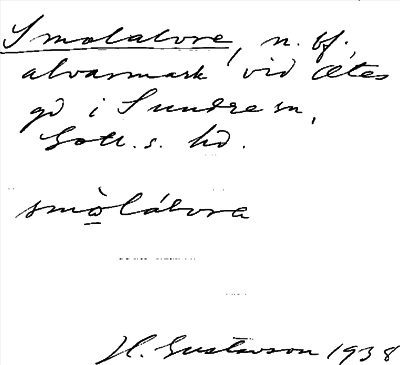 Smolalvre, n. bf,
alvarmark vid Ätes
gd i Sundre sn,
Gotl. s. hd.
smòlálvra
H. Gustavson 1938